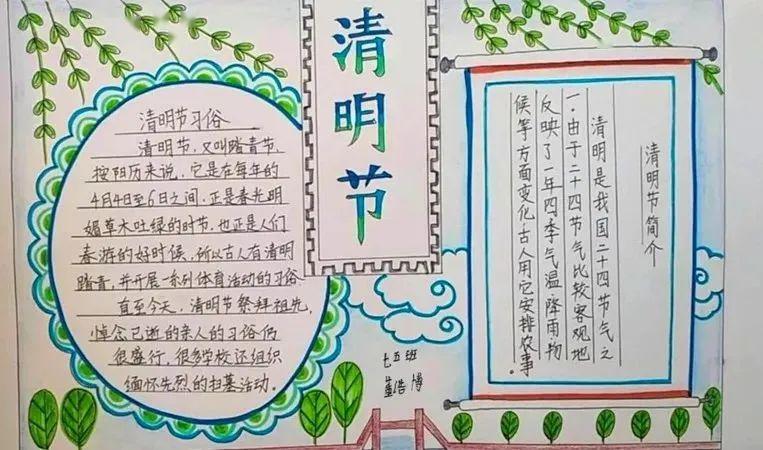 清明节
清明节习俗
清明节，又叫踏青节，
按阳历来说，它是在每年的
4月4日至6日之间，正是春光明
媚草木吐绿的时节，也正是人们
春游的好时候，所以古人有清明
踏青，并开展一系列体育活动的习俗
直至今天，清明节祭拜祖先，
悼念已逝的亲人的习俗仍
很盛行，很多学校还组织
缅怀先烈的扫墓活动。
清明节简介
清明是我国二十四节气之
一。由于二十四节气比较客观地
反映了一年四季气温降雨物
候等方面变化古人用它安排农事。
七五班
董浩博